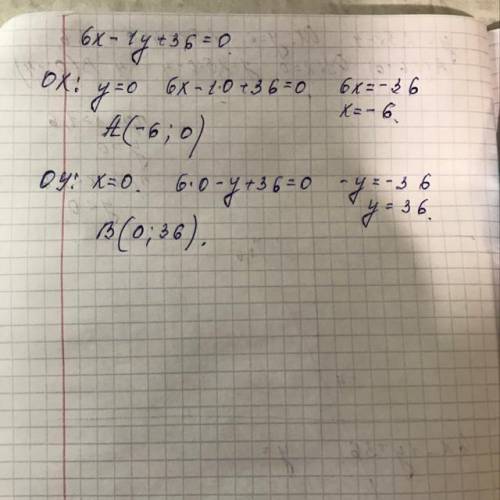 6x - 1y + 36 = 0.
OX: y = 0 6x - 1·0 + 36 = 0. 6x = -36
x = -6.
A(-6; 0)
OY: x = 0. 6·0 - y + 36 = 0 -y = -36
y = 36.
B(0; 36).